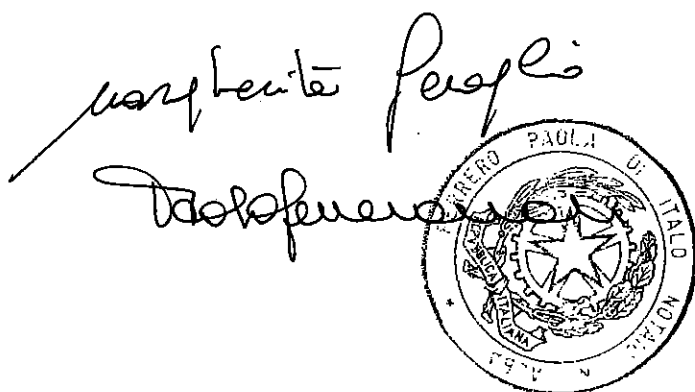 Margherita
Paola Ferrero notaio
FERRERO PAOLA DI ITALO NOTAIO IN ALBA
REPUBBLICA ITALIANA